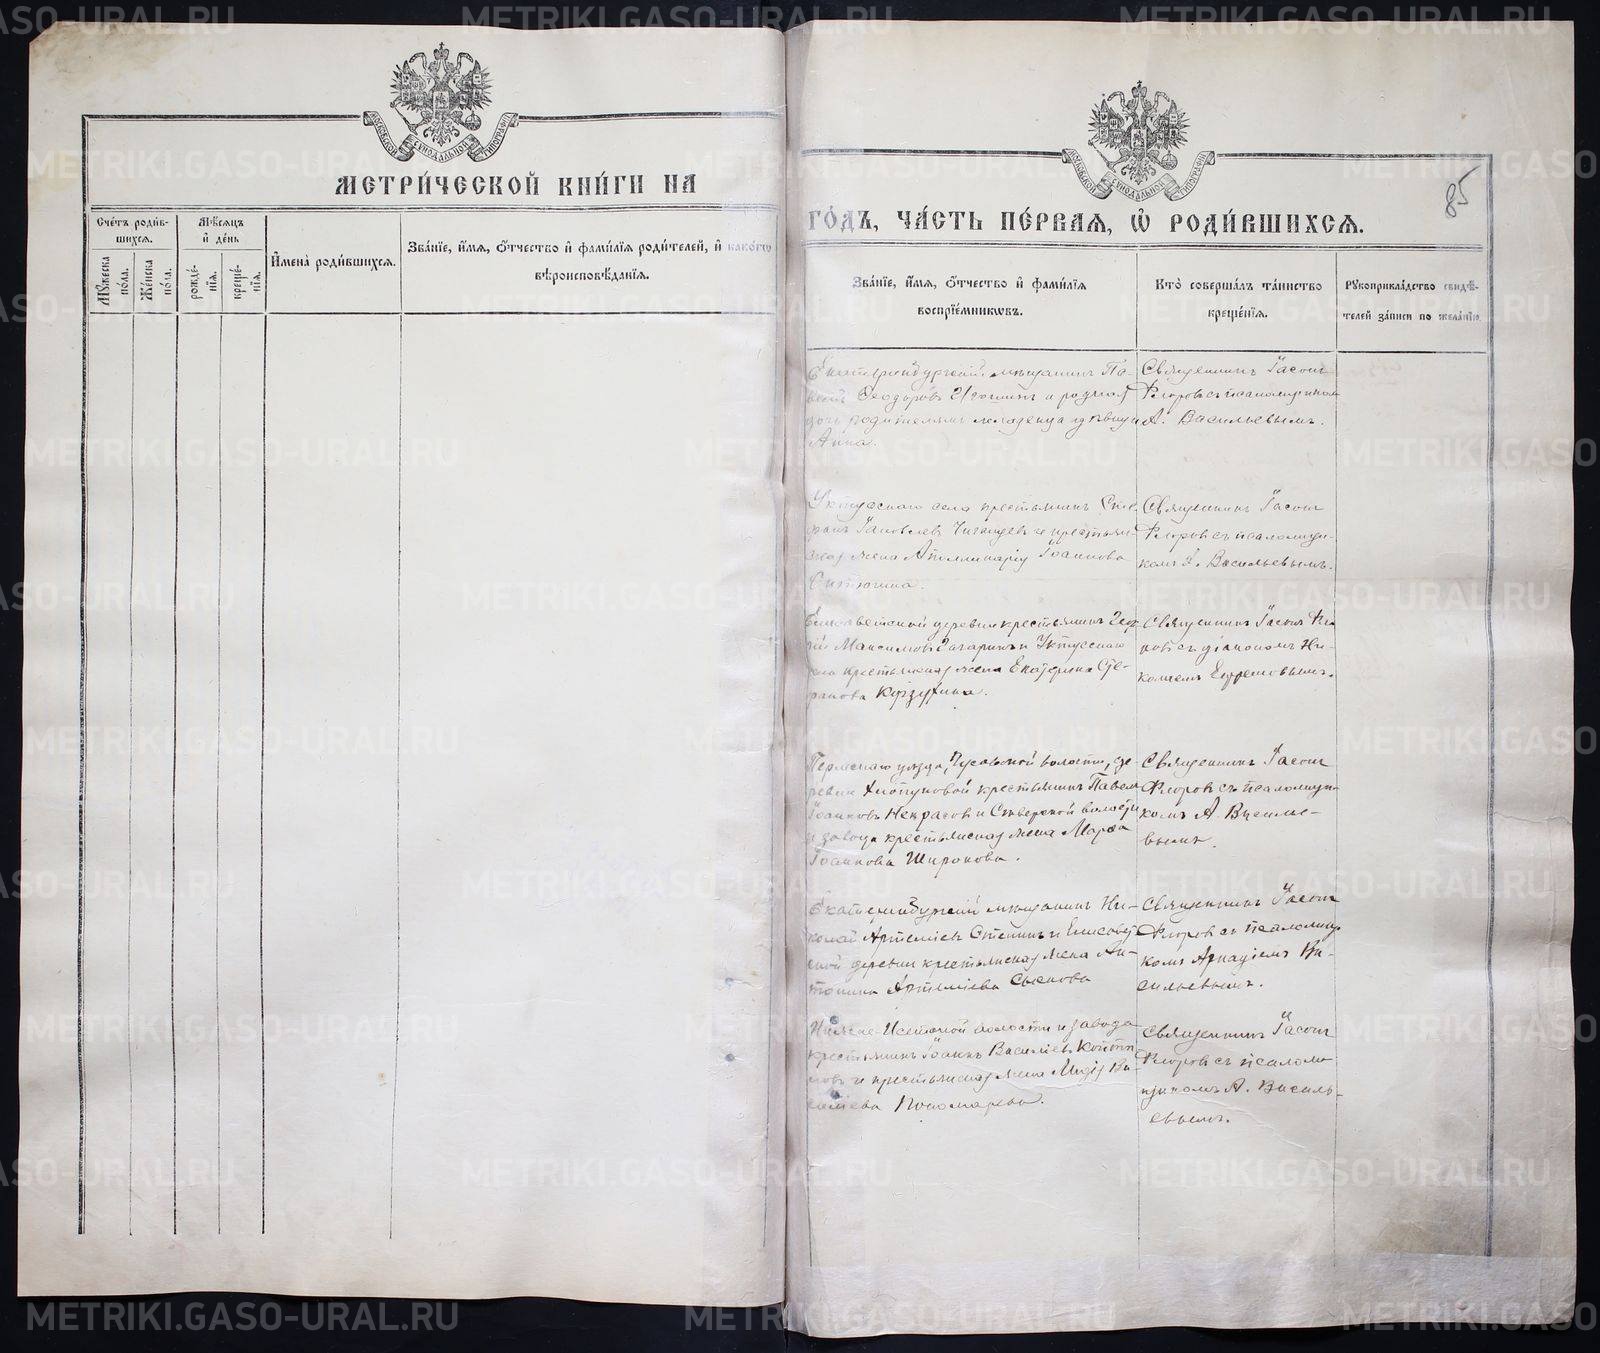 МОСКОВСКОЙ СѴНОДАЛЬНОЙ ТИПОГРАФІИ
МЕТРИ́ЧЕСКОЙ КНИ́ГИ НА
Сче́тъ роди́в-
шихсѧ.
Мꙋ́жеска по́ла.
Же́нска по́ла.
Мѣ́сѧцъ
и҆ де́нь
рожде́-
нїѧ.
креще́-
нїѧ.
И҆мена̀ роди́вшихсѧ.
Зва́нїе, и҆́мѧ, ѻ҆́тчество и҆ фами́лїѧ роди́телей, и҆ како́гѡ
вѣроисповѣ́данїѧ.
МОСКОВСКОЙ СѴНОДАЛЬНОЙ ТИПОГРАФІИ
85
ГО́ДЪ, ЧА́СТЬ ПЕ́РВАѦ, Ѽ РОДИ́ВШИХСѦ.
Зва́нїе, и҆́мѧ, ѻ҆́тчество и҆ фами́лїѧ
воспрїе́мникѡвъ.
Кто̀ соверша́лъ та́инство
креще́нїѧ.
Рꙋкоприкла́дство свидѣ́-
телей за́писи по жела́нїю.
Екатеринбургскій мѣщанинъ Па-
велъ Ѳеодоровъ и родная
дочь родителямъ младенца дѣвица
Анна.
Священникъ Іасонъ
Флоровъ съ псаломщикомъ
А. Васильевымъ.
Уктусскаго села крестьянинъ Сте-
фанъ Іаковлевъ и крестьян-
ская жена Аполлинарія Іоаннова
Священникъ Іасонъ
Флоровъ съ псаломщи-
комъ А. Васильевымъ.
Елисаветской деревни крестьянинъ Геор-
гій Максимовъ Гагаринъ и Уктусскаго
села крестьянская жена Екатерина Сте-
фанова Корзухина.
Священникъ Іасонъ Фло-
ровъ съ діакономъ Ни-
колаемъ Ефремовымъ.
Пермскаго уѣзда, волости, де-
ревни крестьянинъ Павелъ
Іоанновъ Некрасовъ и Сысертской волости
и завода крестьянская жена Марѳа
Іоаннова Широкова.
Священникъ Іасонъ
Флоровъ съ псаломщи-
комъ А. Василье-
вымъ.
Екатеринбургскій мѣщанинъ Ни-
колай Артеміевъ и Елисавет-
ской деревни крестьянская жена Ан-
тонина Артеміева
Священникъ Іасонъ
Флоровъ съ псаломщи-
комъ Аркадіемъ Ва-
сильевымъ.
Нижне-Исетской волости и завода
крестьянинъ Іоаннъ Василіевъ
и крестьянская жена Лидія Ва-
силіева Пономарева.
Священникъ Іасонъ
Флоровъ съ псалом-
щикомъ А. Василь-
евымъ.
METRIKI.GASO-URAL.RU